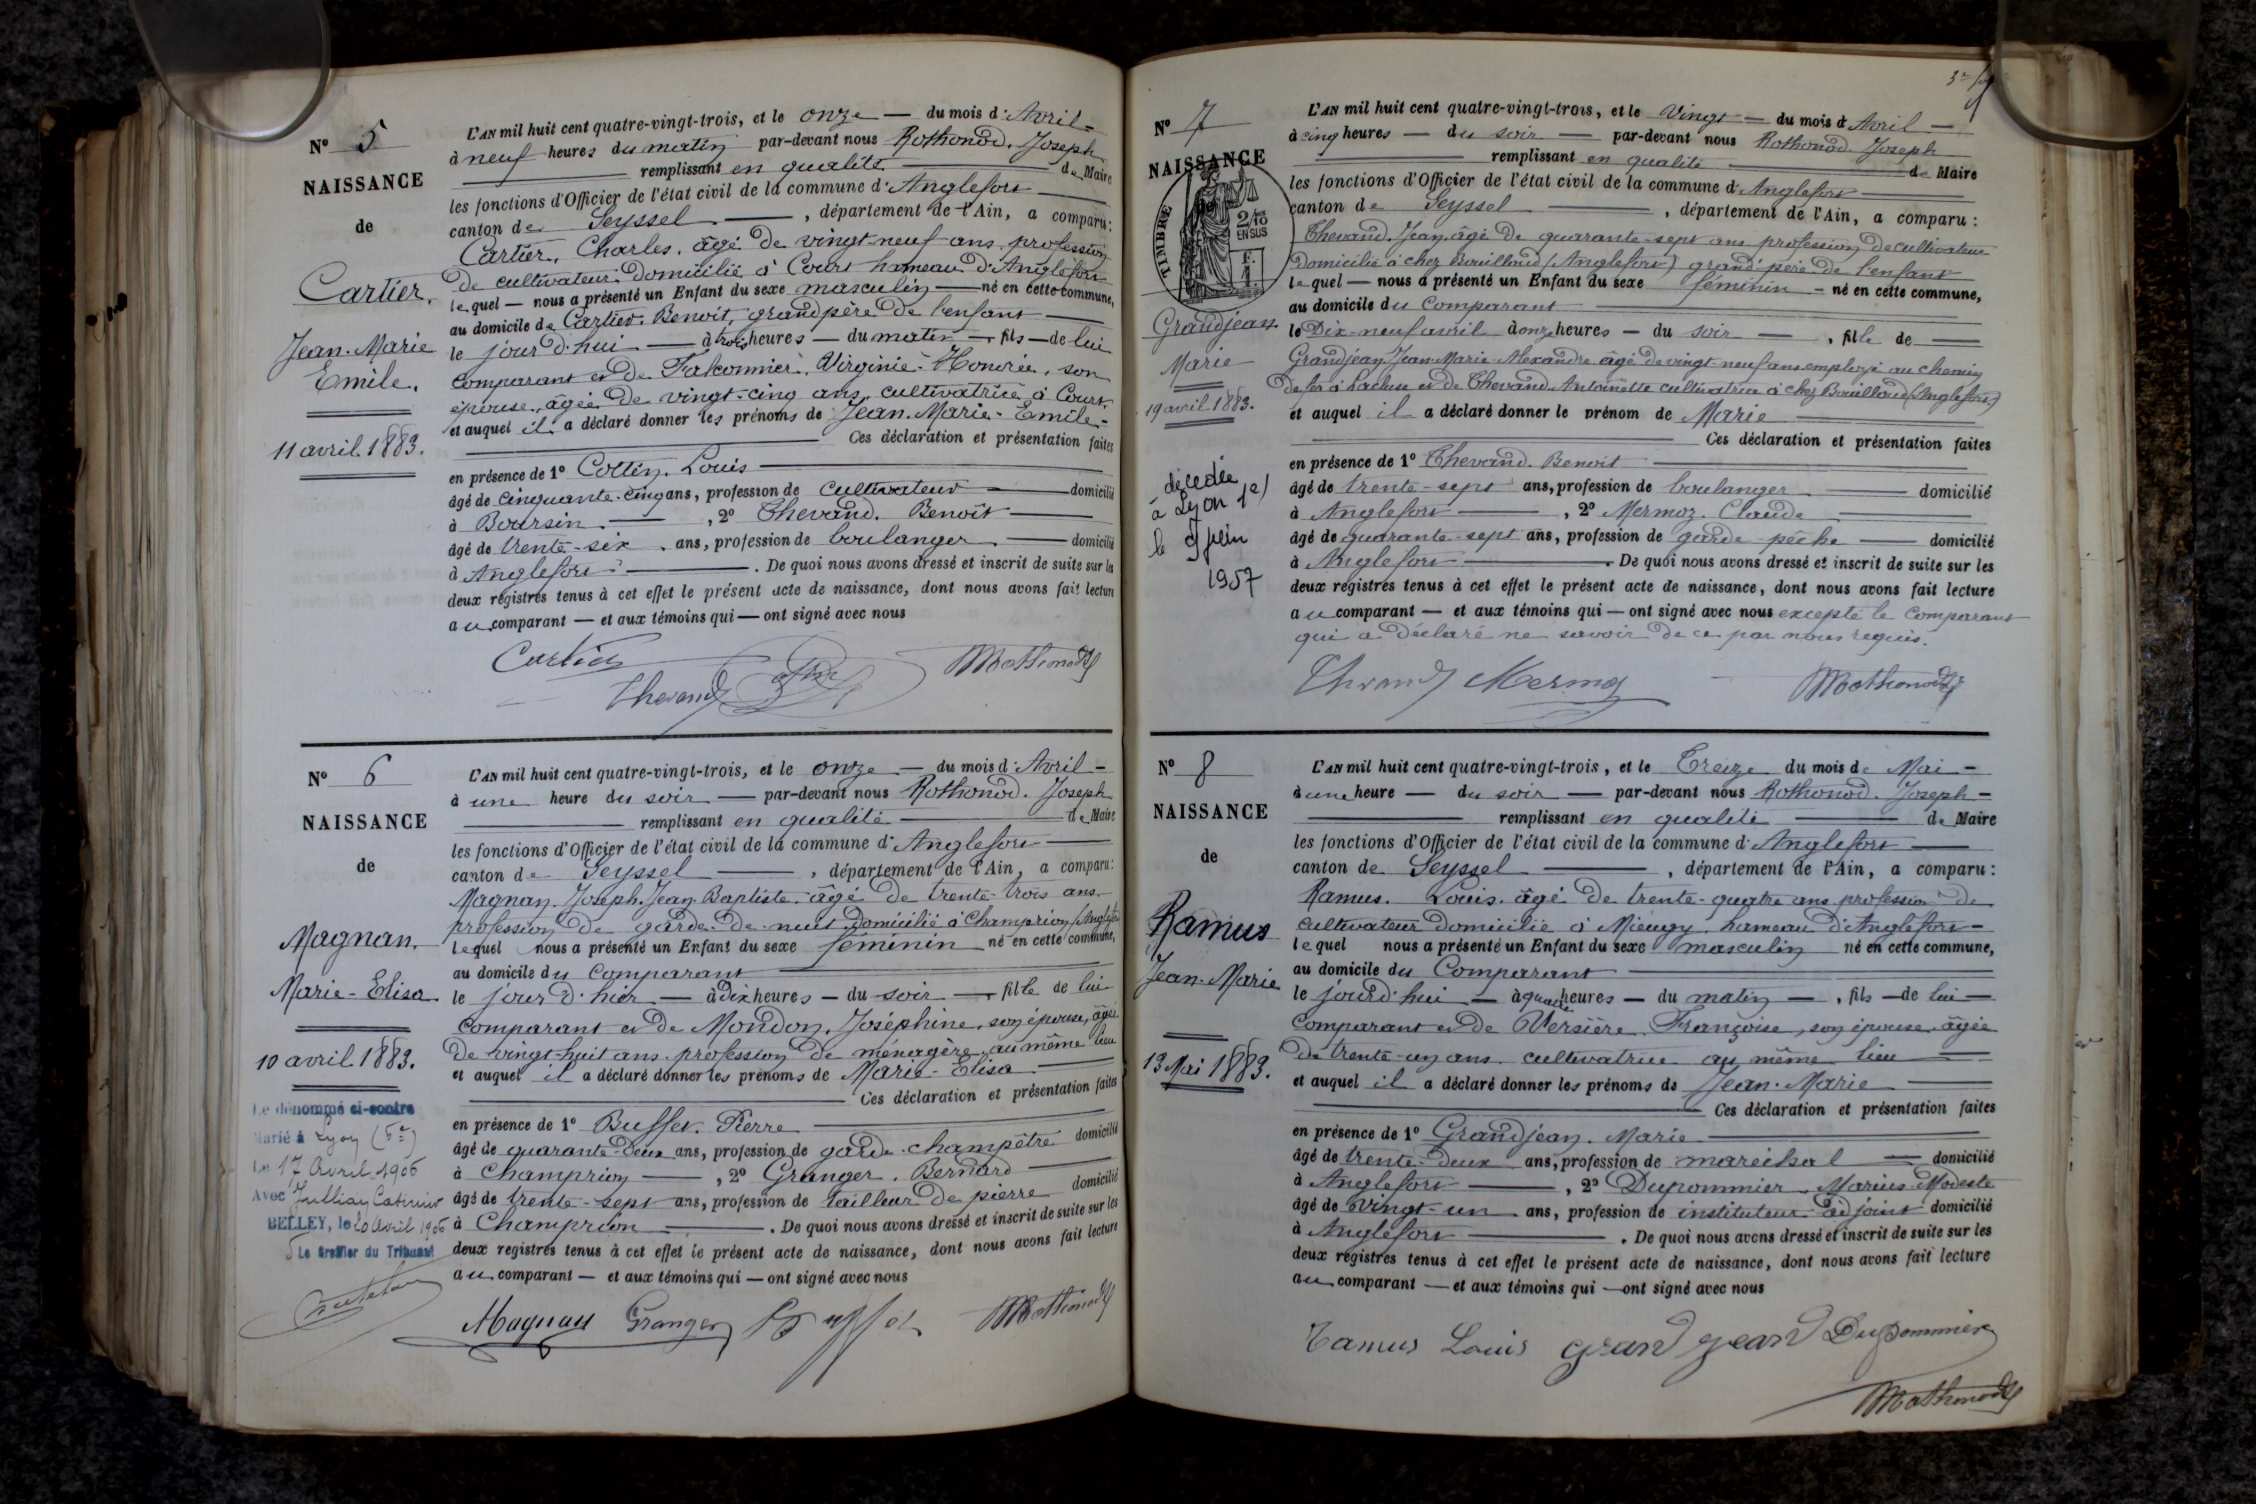 Nº 5
NAISSANCE
de
Cartier,
Jean-Marie
Emile.
11 avril 1883.
L'AN mil huit cent quatre-vingt-trois, et le onze — du mois d'Avril —
à neuf heures du matin par-devant nous Rothonod, Joseph
remplissant en qualité de Maire
les fonctions d'Officier de l'état civil de la commune d'Anglefort
canton de Seyssel —, département de l'Ain, a comparu:
Cartier, Charles, âgé de vingt-neuf ans, profession
de cultivateur domicilié à Court hameau d'Anglefort
lequel — nous a présenté un Enfant du sexe masculin — né en cette commune,
au domicile de Cartier, Benoit, grand père de l'enfant —
le jour d'hui — à trois heures — du matin —, fils — de lui
comparant et de Falconnier, Virginie-Honorée, son
épouse, âgée de vingt-cinq ans, cultivatrice à Court.
et auquel il a déclaré donner les prénoms de Jean-Marie-Emile —
Ces déclaration et présentation faites
en présence de 1º Cottin, Louis —
âgé de cinquante-cinq ans, profession de cultivateur — domicilié
à Boursin —, 2º Thevand, Benoît —
âgé de trente-six ans, profession de boulanger — domicilié
à Anglefort —. De quoi nous avons dressé et inscrit de suite sur la
deux registres tenus à cet effet le présent acte de naissance, dont nous avons fait lecture
au comparant — et aux témoins qui — ont signé avec nous
Cartier
Thevand
Rothonod
Nº 6
NAISSANCE
de
Magnan,
Marie-Elisa
10 avril 1883.
Le dénommé ci-contre
Marié à Lyon (5e)
Le 17 Avril 1906
Avec Jullian
BELLEY, le 20 Avril 1906
Le Greffier du Tribunal
L'AN mil huit cent quatre-vingt-trois, et le onze — du mois d'Avril —
à une heure du soir — par-devant nous Rothonod, Joseph
remplissant en qualité — de Maire
les fonctions d'Officier de l'état civil de la commune d'Anglefort —
canton de Seyssel —, département de l'Ain, a comparu:
Magnan, Joseph-Jean-Baptiste, âgé de trente-trois ans
profession de garde-de-nuit domicilié à Champrion (Anglefort)
lequel nous a présenté un Enfant du sexe féminin né en cette commune,
au domicile du comparant —
le jour d'hier — à dix heures — du soir —, fille de lui
comparant et de Mondon, Joséphine, son épouse, âgée
de vingt-huit ans, profession de ménagère au même lieu
et auquel il a déclaré donner les prénoms de Marie-Elisa —
Ces déclaration et présentation faites
en présence de 1º Buffet, Pierre —
âgé de quarante-deux ans, profession de garde-champêtre domicilié
à Champrion —, 2º Granger, Bernard —
âgé de trente-sept ans, profession de tailleur de pierre domicilié
à Champrion —. De quoi nous avons dressé et inscrit de suite sur les
deux registres tenus à cet effet le présent acte de naissance, dont nous avons fait lecture
au comparant — et aux témoins qui — ont signé avec nous
Magnan Granger Buffet Rothonod
Nº 7
NAISSANCE
TIMBRE
2/10
EN SUS
F.
1
Grandjean
Marie
19 avril 1883.
décédée
à Lyon 1e)
le 9 juin
1957
L'AN mil huit cent quatre-vingt-trois, et le Vingt — du mois d'Avril —
à cinq heures — du soir — par-devant nous Rothonod, Joseph
remplissant en qualité — de Maire
les fonctions d'Officier de l'état civil de la commune d'Anglefort —
canton de Seyssel —, département de l'Ain, a comparu:
Thevand, Jean, âgé de quarante-sept ans profession de cultivateur
domicilié à chez Bouilloud (Anglefort) grand-père de l'enfant
lequel — nous a présenté un Enfant du sexe féminin — né en cette commune,
au domicile du comparant —
le Dix-neuf avril à onze heures — du soir —, fille de —
Grandjean Jean-Marie-Alexandre âgé de vingt-neuf ans employé au chemin
de fer à et de Thevand Antoinette cultivatrice à chez Bouilloud (Anglefort)
et auquel il a déclaré donner le prénom de Marie —
Ces déclaration et présentation faites
en présence de 1º Thevand, Benoit —
âgé de trente-sept ans, profession de boulanger — domicilié
à Anglefort —, 2º Mermoz, Claude —
âgé de quarante-sept ans, profession de garde-pêche — domicilié
à Anglefort —. De quoi nous avons dressé et inscrit de suite sur les
deux registres tenus à cet effet le présent acte de naissance, dont nous avons fait lecture
au comparant — et aux témoins qui — ont signé avec nous excepté le comparant
qui a déclaré ne savoir de ce par nous requis.
Thevand Mermoz Rothonod
Nº 8
NAISSANCE
de
Ramus
Jean-Marie
13 Mai 1883.
L'AN mil huit cent quatre-vingt-trois, et le Treize du mois de Mai —
à une heure — du soir — par-devant nous Rothonod, Joseph —
remplissant en qualité — de Maire
les fonctions d'Officier de l'état civil de la commune d'Anglefort —
canton de Seyssel —, département de l'Ain, a comparu:
Ramus, Louis, âgé de trente-quatre ans profession de
cultivateur domicilié à Mieugy, hameau d'Anglefort —
lequel nous a présenté un Enfant du sexe masculin né en cette commune,
au domicile du Comparant —
le jourd'hui — à quatre heures — du matin —, fils — de lui —
comparant et de Versière Françoise, son épouse âgée
de trente-un ans cultivatrice au même lieu —
et auquel il a déclaré donner les prénoms de Jean-Marie —
Ces déclaration et présentation faites
en présence de 1º Grandjean, Marie —
âgé de trente-deux ans, profession de maréchal — domicilié
à Anglefort —, 2º Dupommier, Marius-Modeste
âgé de vingt-un ans, profession de instituteur-adjoint domicilié
à Anglefort —. De quoi nous avons dressé et inscrit de suite sur les
deux registres tenus à cet effet le présent acte de naissance, dont nous avons fait lecture
au comparant — et aux témoins qui — ont signé avec nous
Ramus Louis grand jean Dupommier
Rothonod